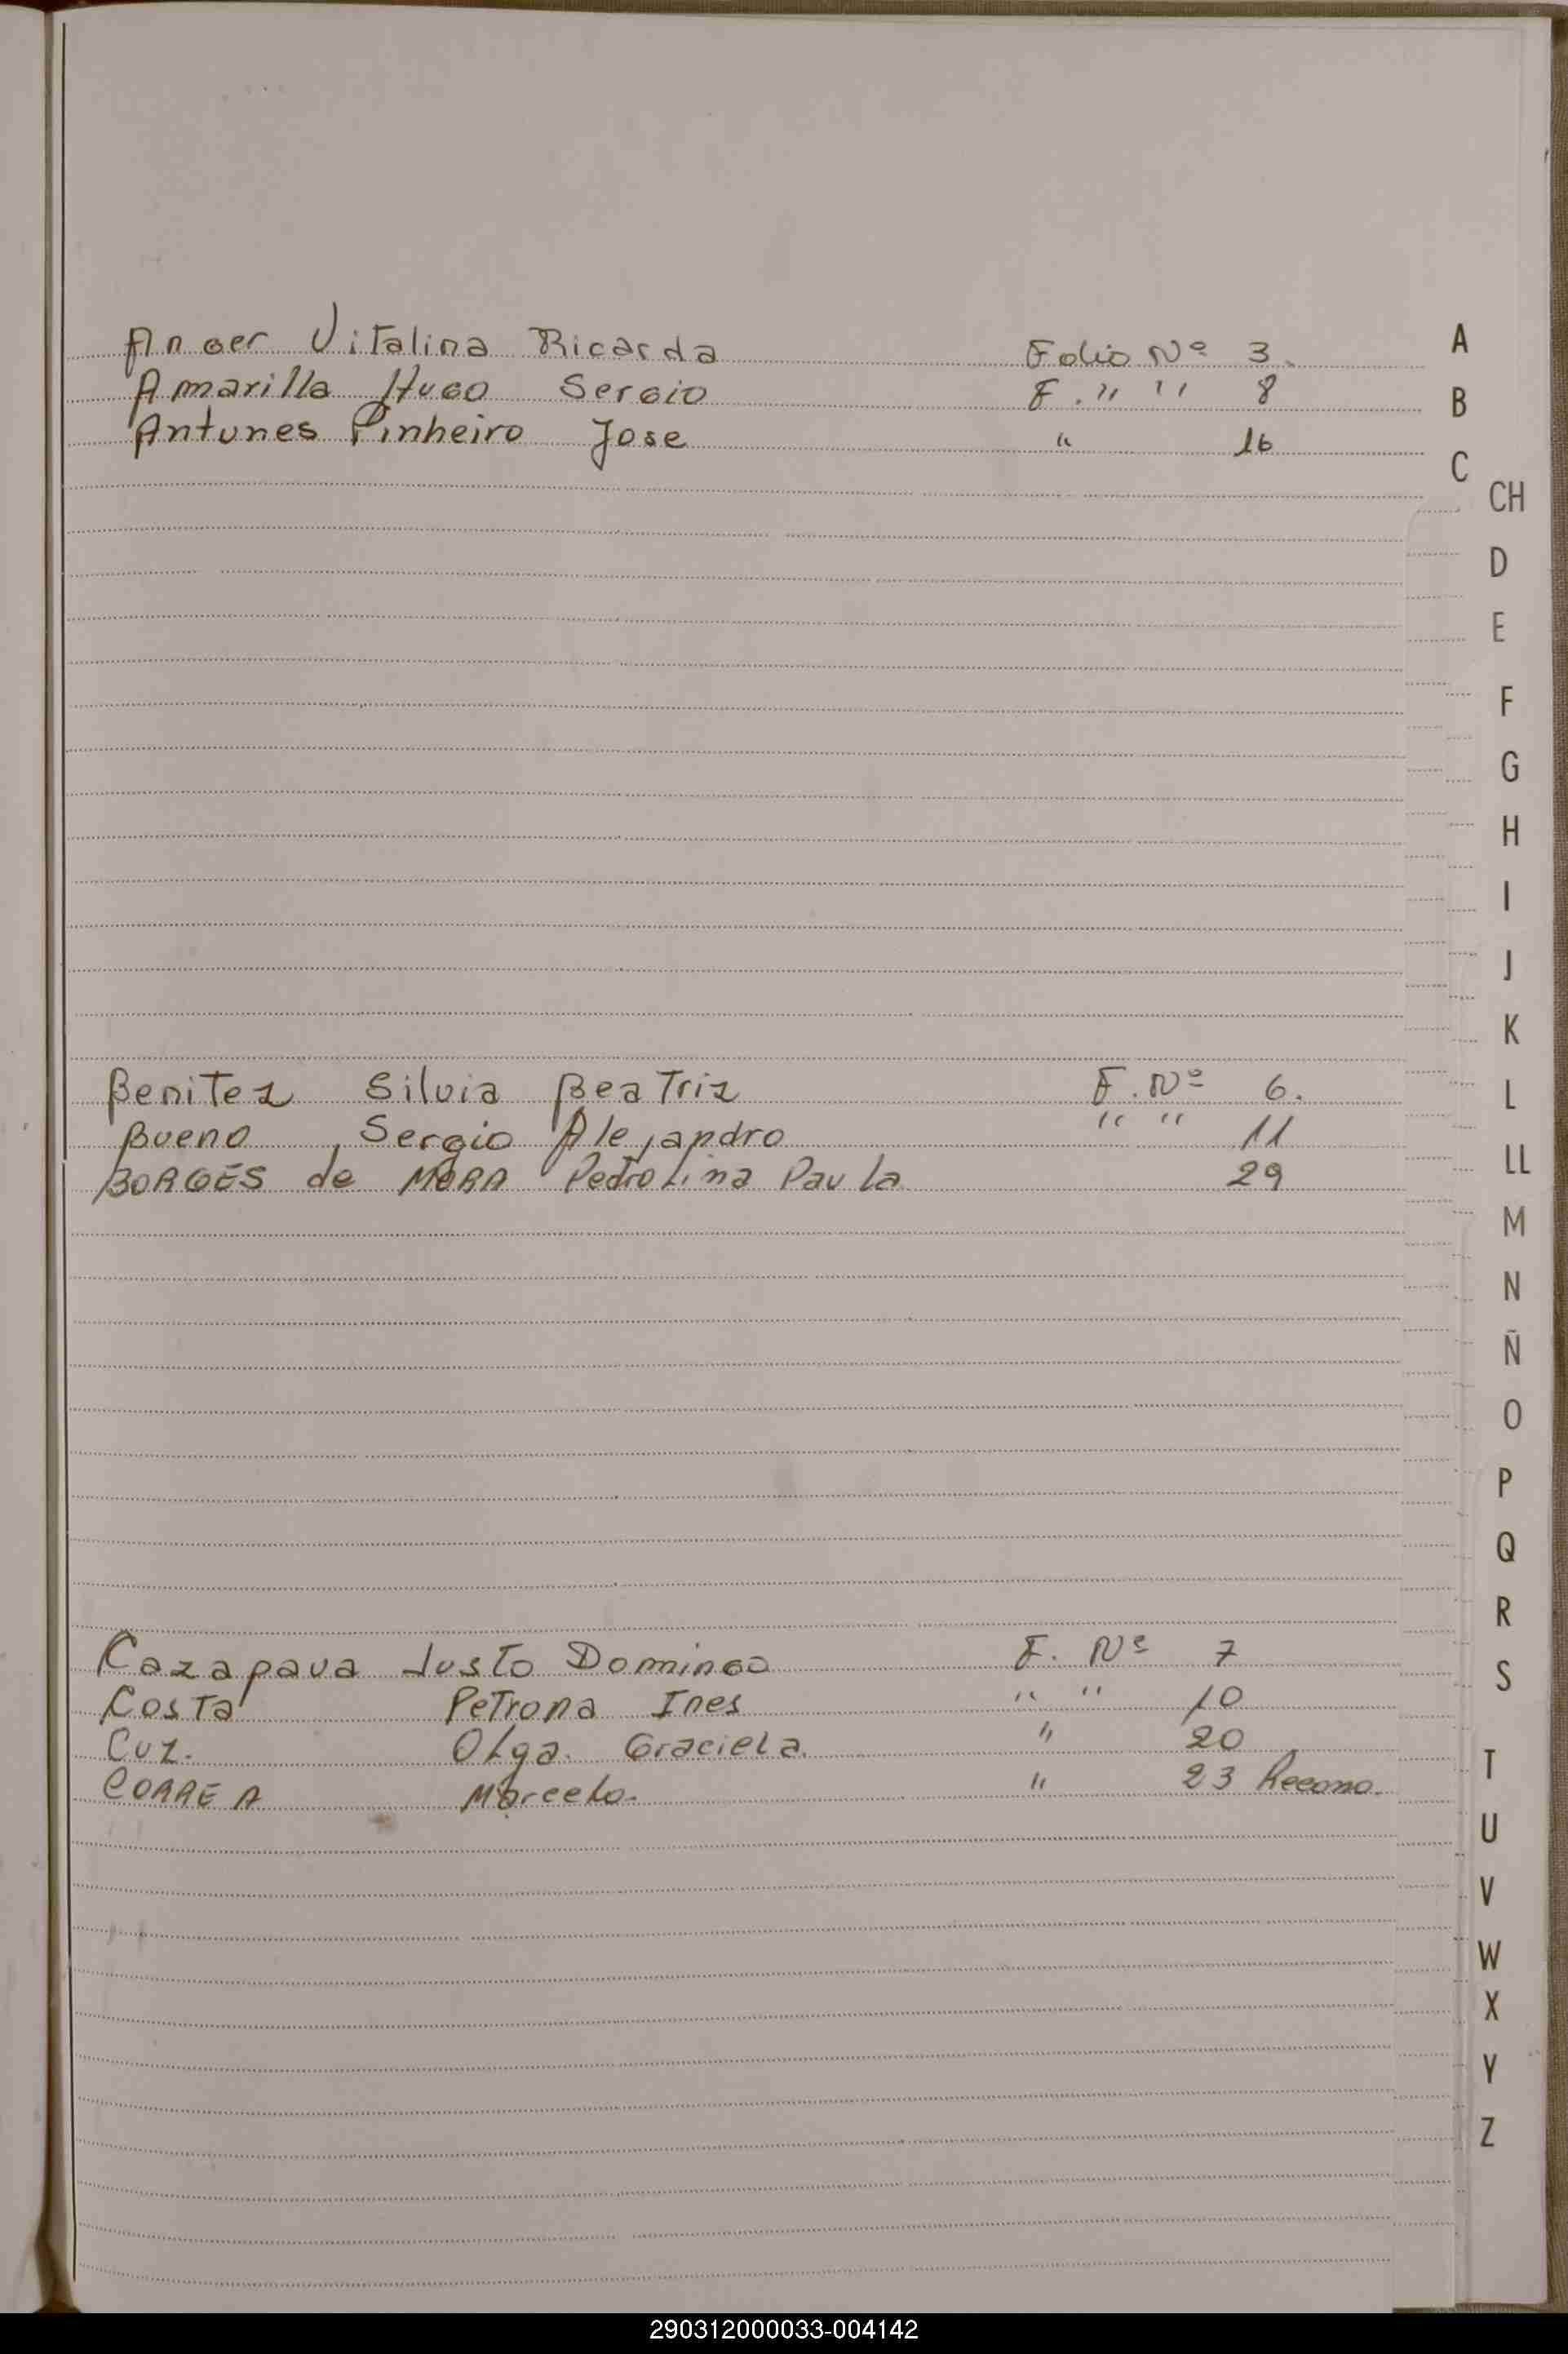 Anger Vitalina Ricarda Folio Nº 3.
Amarilla Hugo Sergio F. " " 8
Antunes Pinheiro Jose " 16
Benitez Silvia Beatriz F. Nº 6.
Bueno, Sergio Alejandro " " 11
BORGES de MORA Pedrolina Paula 29
Cazapava Justo Domingo F. Nº 7
Costa Petrona Ines " " 10
Cuz. Olga. Graciela. " 20
CORREA Marcelo. " 23 Recono.
A
B
C
CH
D
E
F
G
H
I
J
K
L
LL
M
N
Ñ
O
P
Q
R
S
T
U
V
W
X
Y
Z
290312000033-004142